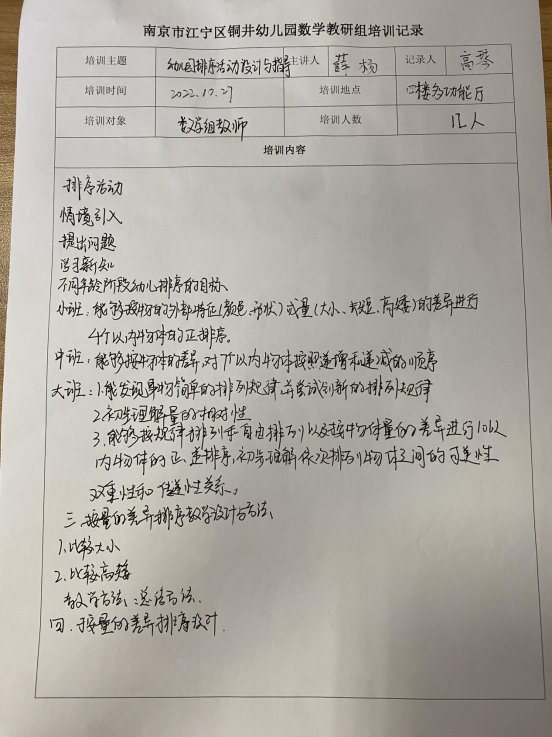 南京市江宁区铜井幼儿园数学教研组培训记录
培训主题 幼儿园排序活动设计与指导 主讲人 薛杨 记录人 高琴
培训时间 2022.10.27 培训地点 四楼多功能厅
培训对象 数学组教师 培训人数 12人
培训内容
排序活动
情境引入
提出问题
学习新知
不同年龄阶段幼儿排序的目标
小班：能够按物的外部特征(颜色、形状)或量(大小、长短、高矮)的差异进行
4个以内物体的正排序。
中班：能够按物体的差异，对7个以内物体按照递增和递减的顺序
大班：1.能发现事物简单的排列规律，并尝试创新的排列规律
2.初步理解量的相对性
3.能够按规律排列和自由排列以及按物体量的差异进行10以
内物体的正、逆排序，初步理解依次排列物体之间的可逆性
双重性和传递性关系。
三.按量的差异排序教学设计与方法、
1.比较大小
2.比较高矮
教学方法：总结方法.
四.按量的差异排序设计.